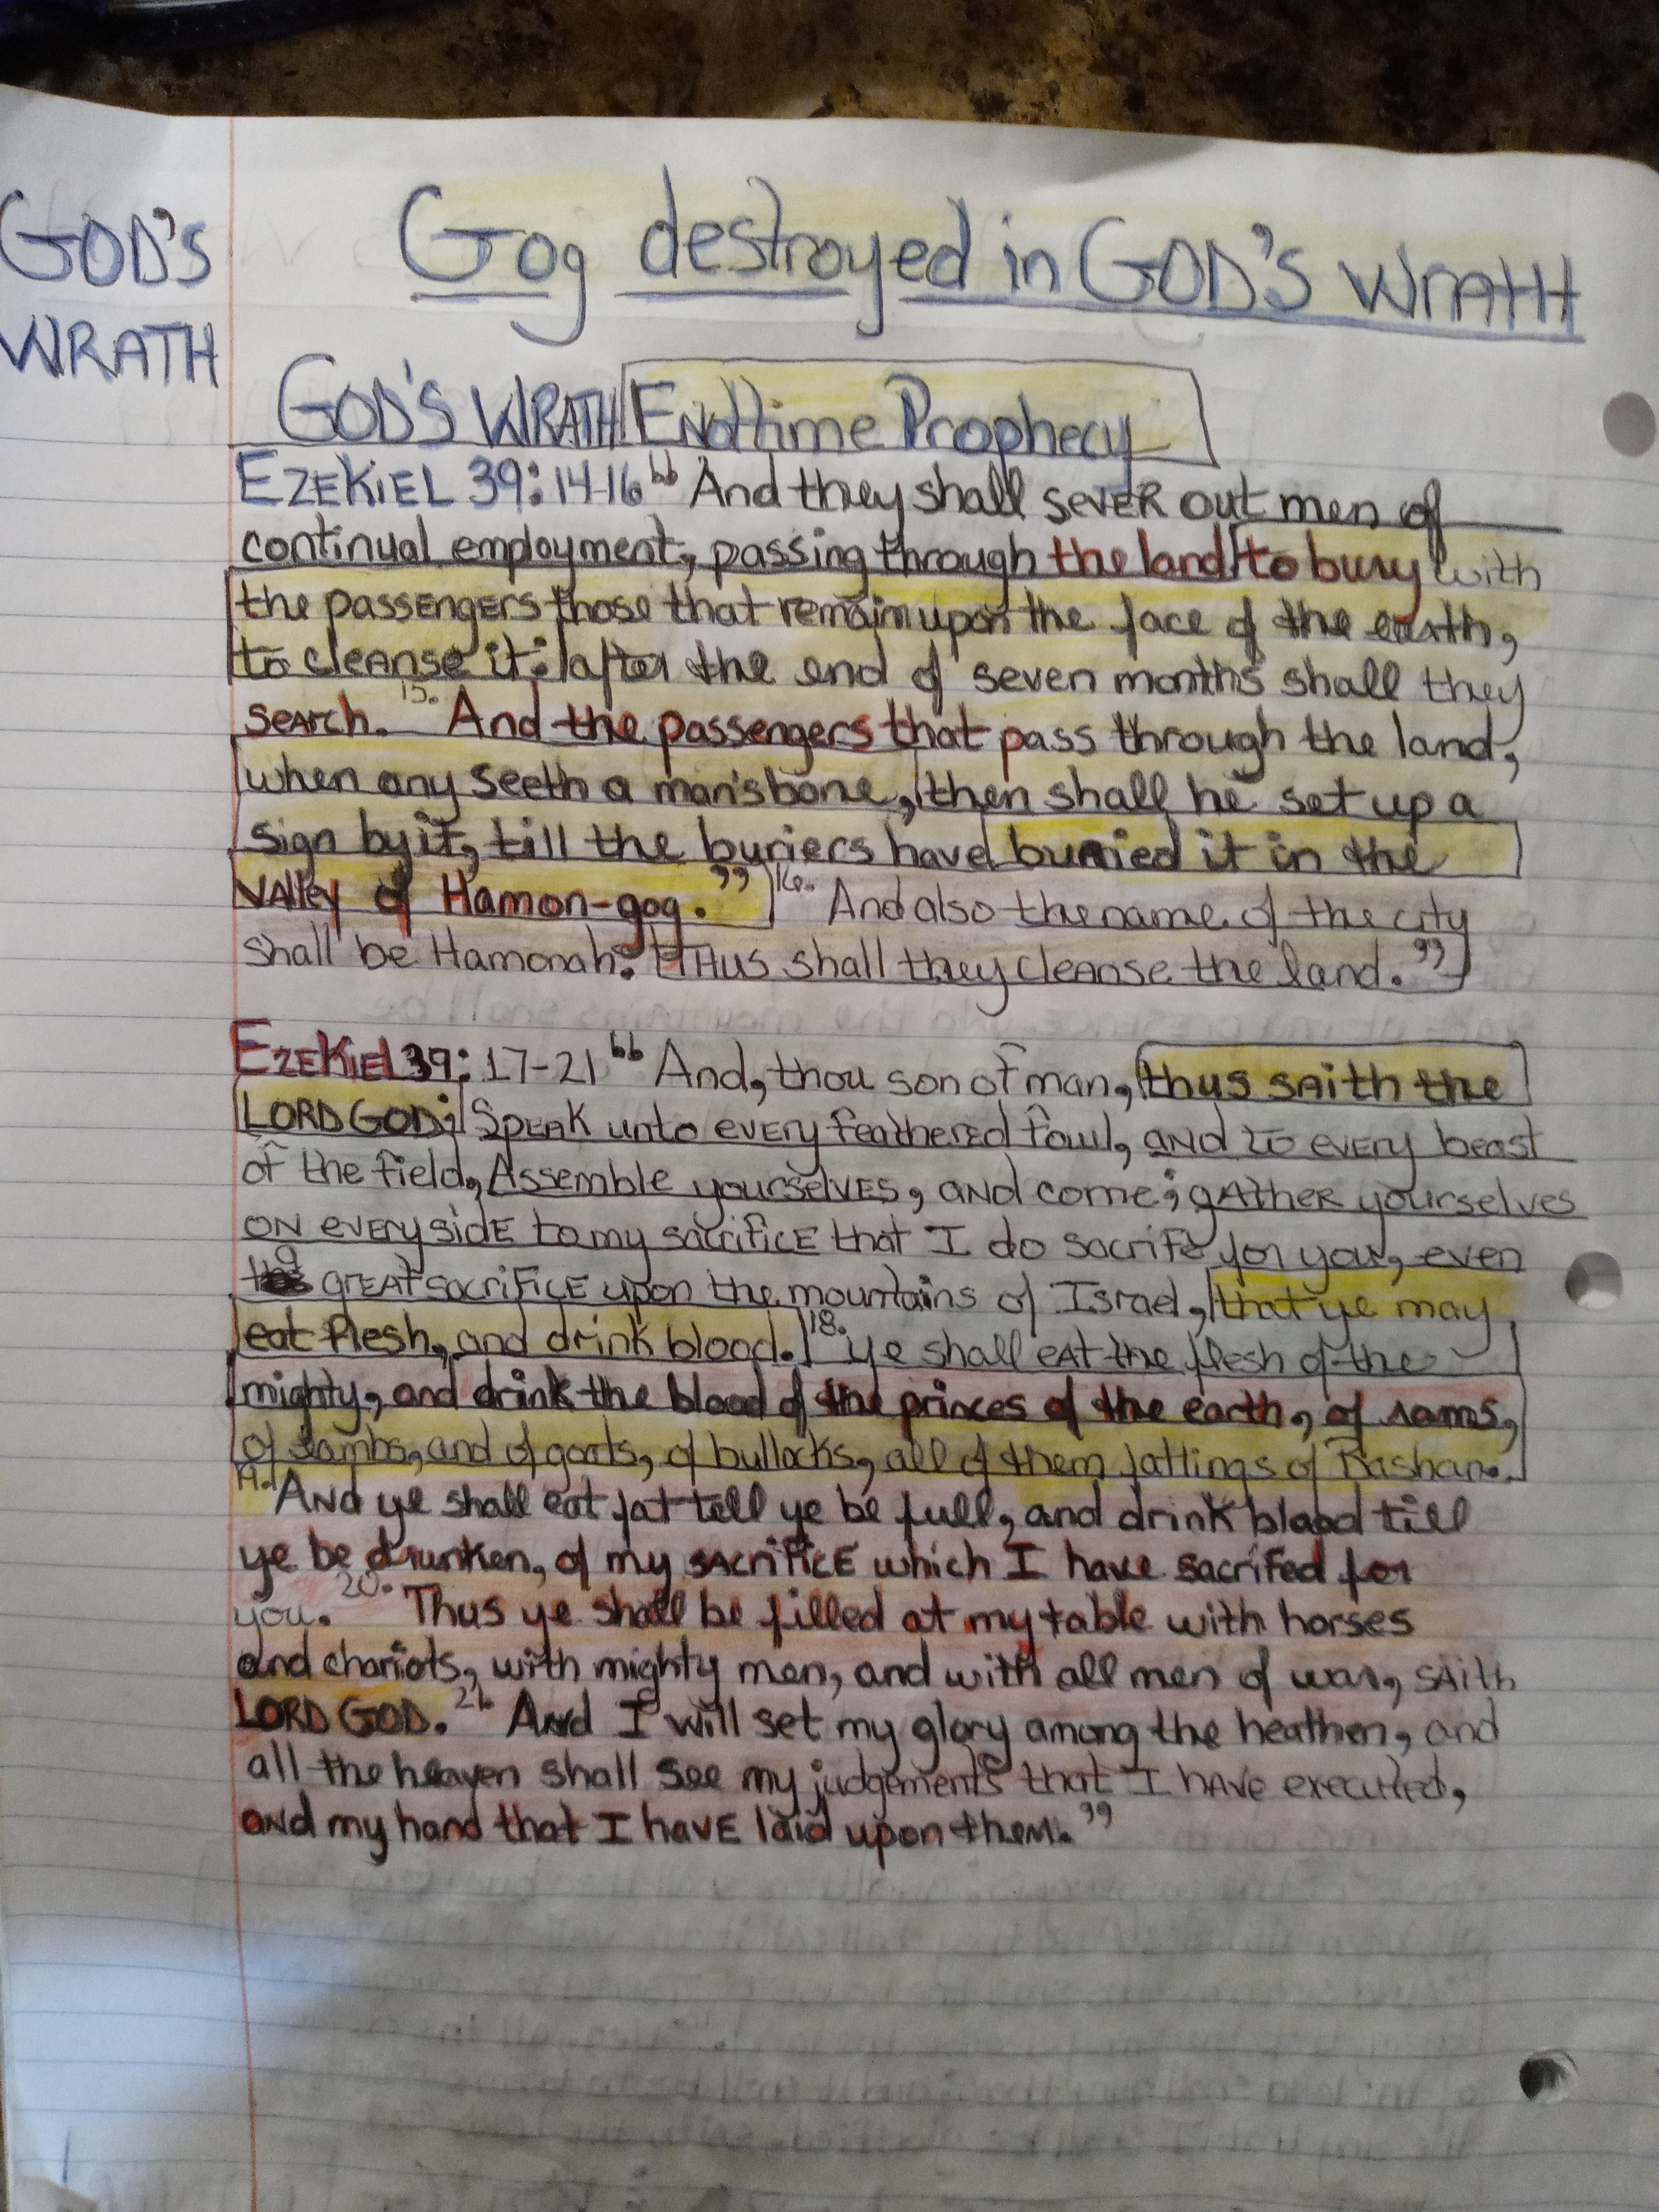 GOD'S
WRATH
Gog destroyed in GOD'S WRATH
GOD'S WRATH Endtime Prophecy
EZEKIEL 39:14-16 "And they shall SEVER out men of
continual employment, passing through the land to bury with
the passengers those that remain upon the face of the earth,
to cleanse it: after the end of seven months shall they
search. 15. And the passengers that pass through the land,
when any seeth a man's bone, then shall he set up a
sign by it, till the buriers have buried it in the
Valley of Hamon-gog." 16. And also the name of the city
shall be Hamonah. THUS shall they cleanse the land."
EZEKIEL 39: 17-21 "And, thou son of man, thus saith the
LORD GOD; Speak unto every feathered fowl, and to every beast
of the field, Assemble yourselves, and come; gather yourselves
on every side to my sacrifice that I do sacrife for you, even
a great sacrifice upon the mountains of Israel, that ye may
eat flesh, and drink blood. 18. Ye shall eat the flesh of the
mighty, and drink the blood of the princes of the earth, of rams,
of lambs, and of goats, of bullocks, all of them fatlings of Bashan.
19. And ye shall eat fat tell ye be full, and drink blood till
ye be drunken, of my sacrifice which I have sacrifed for
you. 20. Thus ye shall be filled at my table with horses
and chariots, with mighty men, and with all men of war, saith
LORD GOD. 21. And I will set my glory among the heathen, and
all the heaven shall see my judgements that I have executed,
and my hand that I have laid upon them."